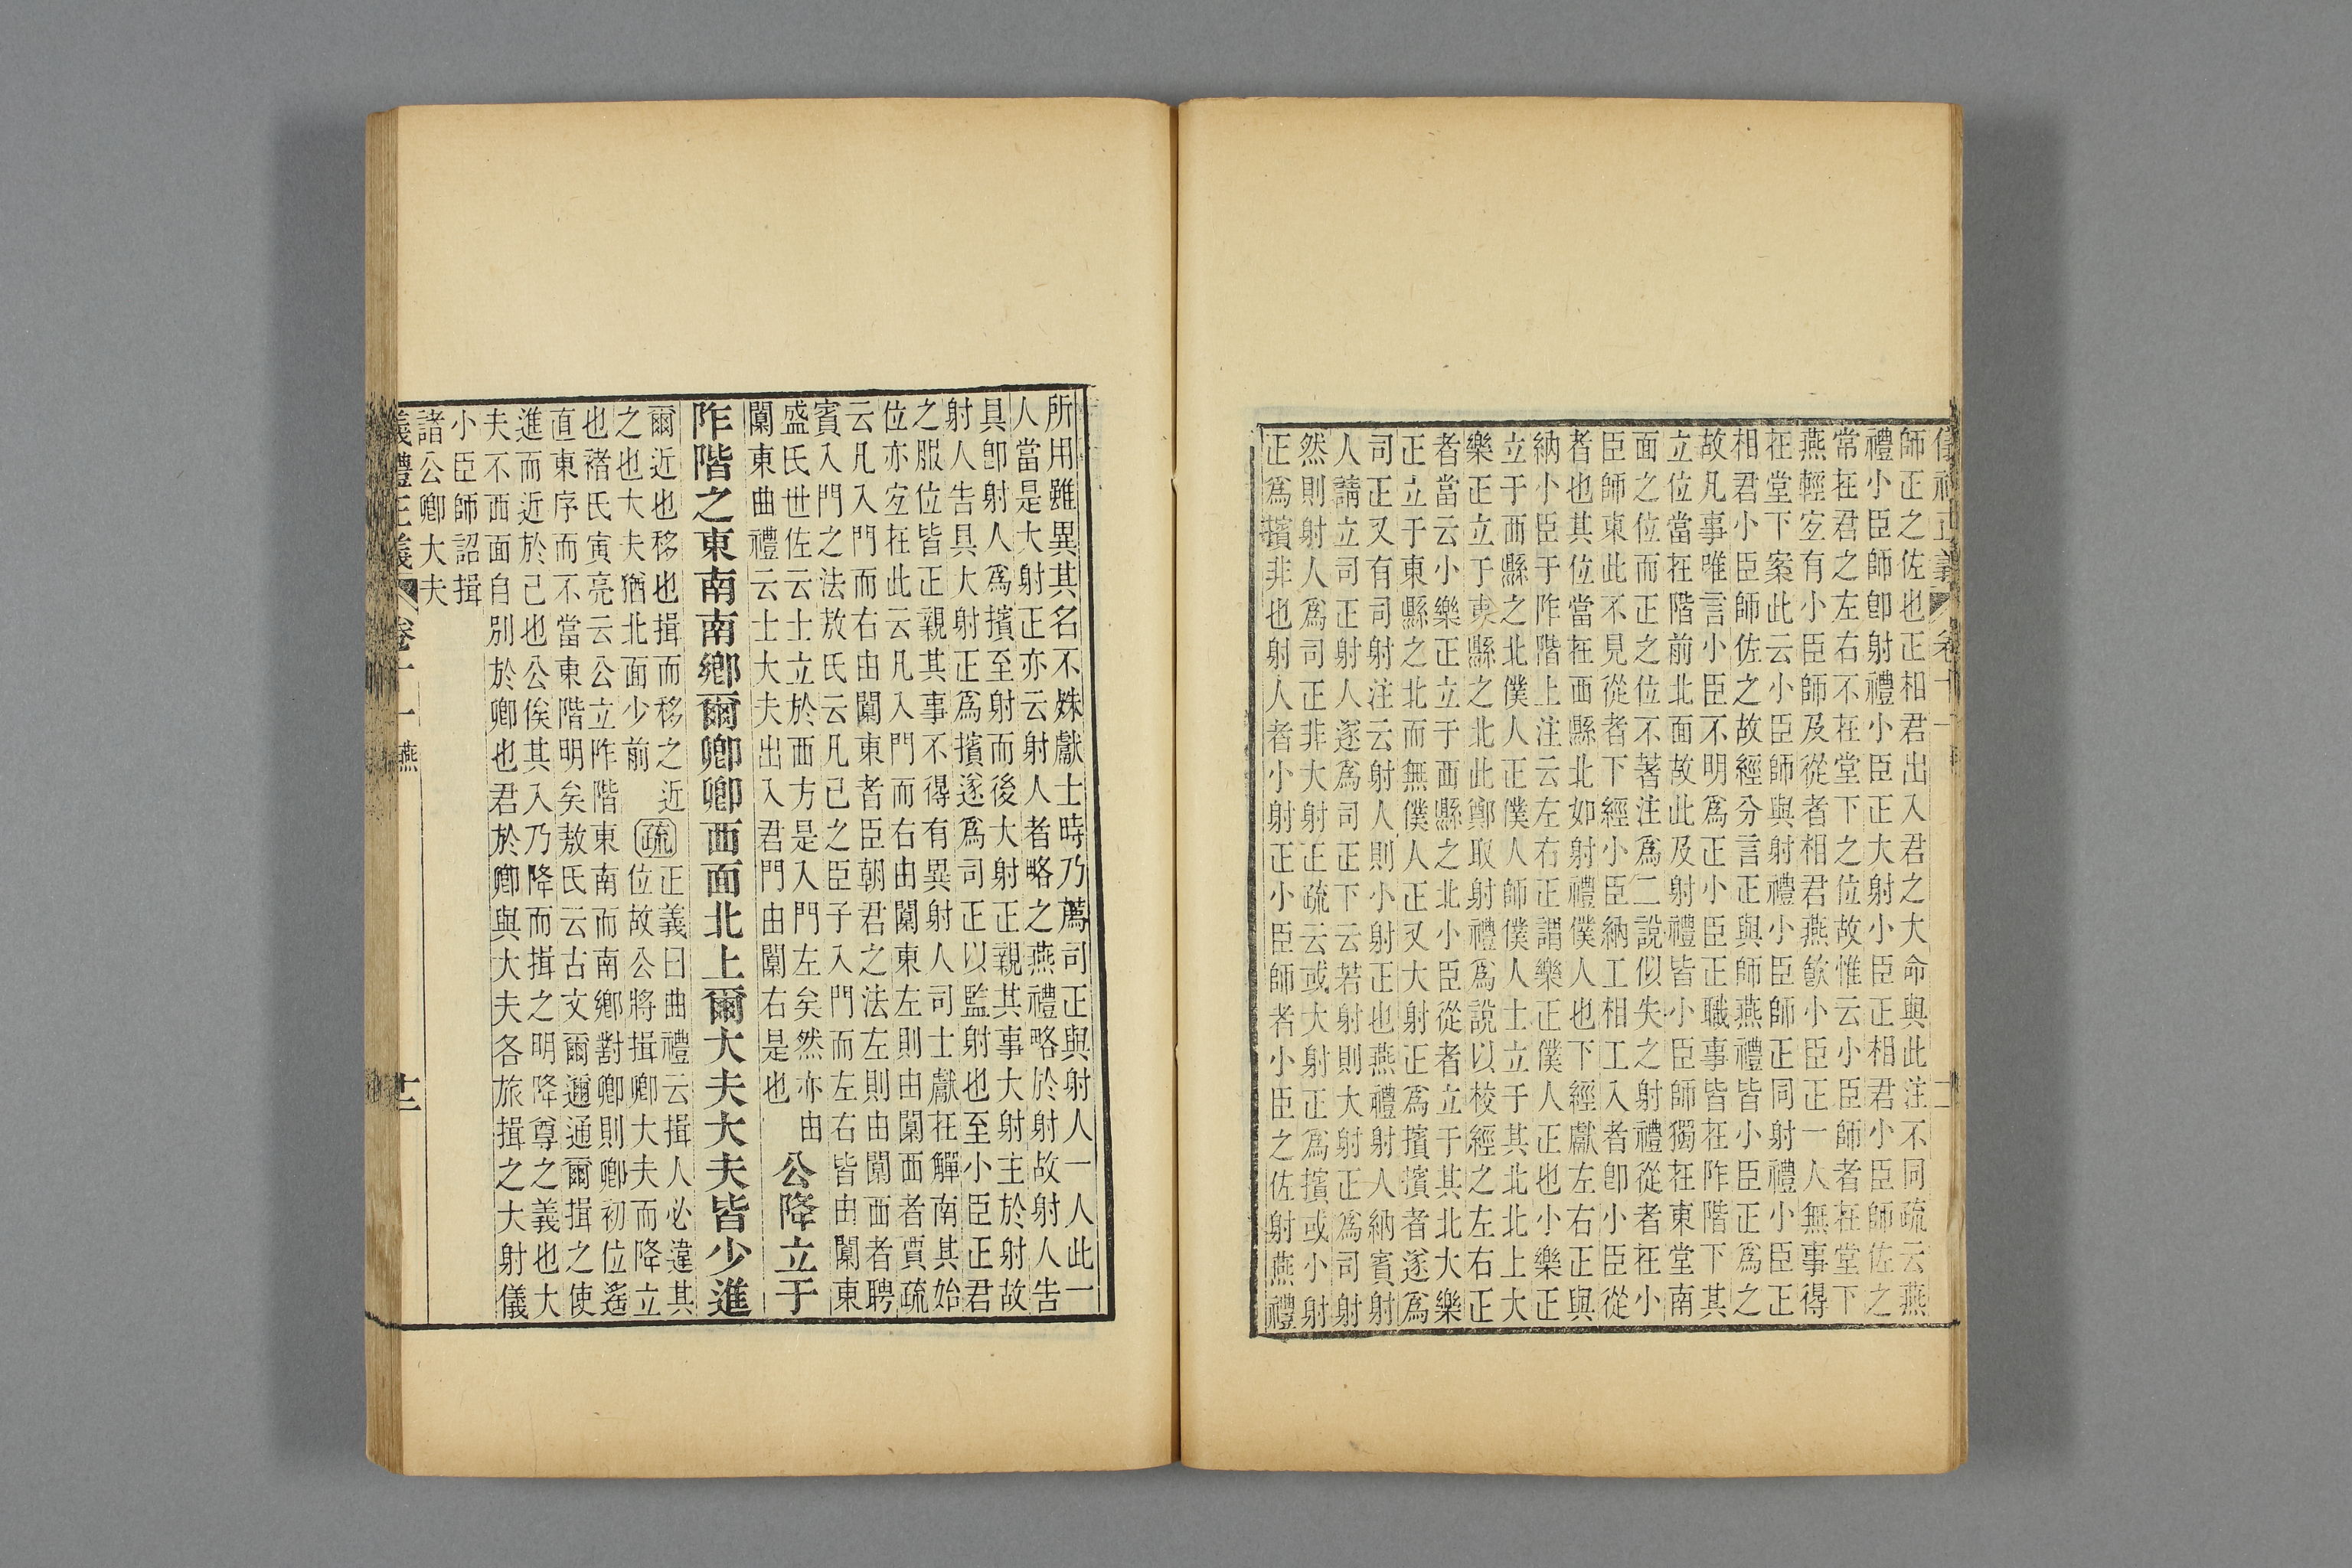 儀禮正義 卷十一
師正之佐也正相君出入君之大命與此注不同疏云燕
禮小臣師卽射禮小臣正大射小臣正相君小臣師佐之
常在君之左右不在堂下之位故惟云小臣師者在堂下
燕輕宐有小臣師及從者相君燕飮小臣正一人無事得
在堂下案此云小臣師與射禮小臣師正同射禮小臣正
相君小臣師佐之故經分言正與師燕禮皆小臣正爲之
故凡事唯言小臣不明爲正小臣正職事皆在阼階下其
立位當在階前北面故此及射禮皆小臣師獨在東堂南
面之位而正之位不著注爲二說似失之射禮從者在小
臣師東此不見從者下經小臣納工相工入者卽小臣從
者也其位當在西縣北如射禮僕人也下經獻左右正與
納小臣于阼階上注云左右正謂樂正僕人正也小樂正
立于西縣之北僕人正僕人師僕人士立于其北北上大
樂正立于東縣之北此鄭取射禮爲說以校經之左右正
者當云小樂正立于西縣之北小臣從者立于其北大樂
正立于東縣之北而無僕人正又大射正爲擯擯者遂爲
司正又有司射注云射人則小射正也燕禮射人納賓射
人請立司正射人遂爲司正下云若射則大射正爲司射
然則射人爲司正非大射正疏云或大射正爲擯或小射
正爲擯非也射人者小射正小臣師者小臣之佐射燕禮
所用雖異其名不姝獻士時乃薦司正與射人一人此一
人當是大射正亦云射人者略之燕禮略於射故射人告
具卽射人爲擯至射而後大射正親其事大射主於射故
射人告具大射正爲擯遂爲司正以監射也至小臣正君
之服位皆正親其事不得有異射人司士獻在觶南其始
位亦宐在此云凡入門而右由闑東左則由闑西者賈疏
云凡入門而右由闑東者臣朝君之法左則由闑西者聘
賓入門之法敖氏云凡己之臣子入門而左右皆由闑東
盛氏世佐云士立於西方是入門左矣然亦由
闑東曲禮云士大夫出入君門由闑右是也
公降立于
阼階之東南南鄉爾卿卿西面北上爾大夫大夫皆少進
爾近也移也揖而移之近
之也大夫猶北面少前
疏
正義曰曲禮云揖人必違其
位故公將揖卿大夫而降立
也褚氏寅亮云公立阼階東南而南鄉對卿則卿初位遙
直東序而不當東階明矣敖氏云古文爾邇通爾揖之使
進而近於己也公俟其入乃降而揖之明降尊之義也大
夫不西面自別於卿也君於卿與大夫各旅揖之大射儀
小臣師詔揖
諸公卿大夫
義禮正義 卷十一 燕 十二